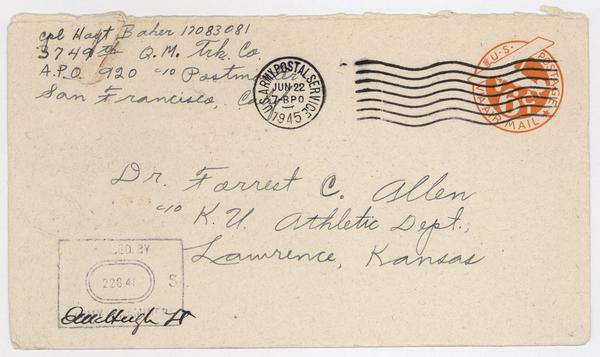 cpl Hoyt Baker 17083081
3749th Q.M. Trk. Co
A.P.O. 920 c/o Postmaster
San Francisco, Ca
U.S. ARMY POSTAL SERVICE
JUN 22
7-8PO
1945
U.S. POSTAGE
6¢
VIA AIR MAIL
Dr. Forrest C. Allen
c/o K.U. Athletic Dept.,
Lawrence, Kansas
BY
S.